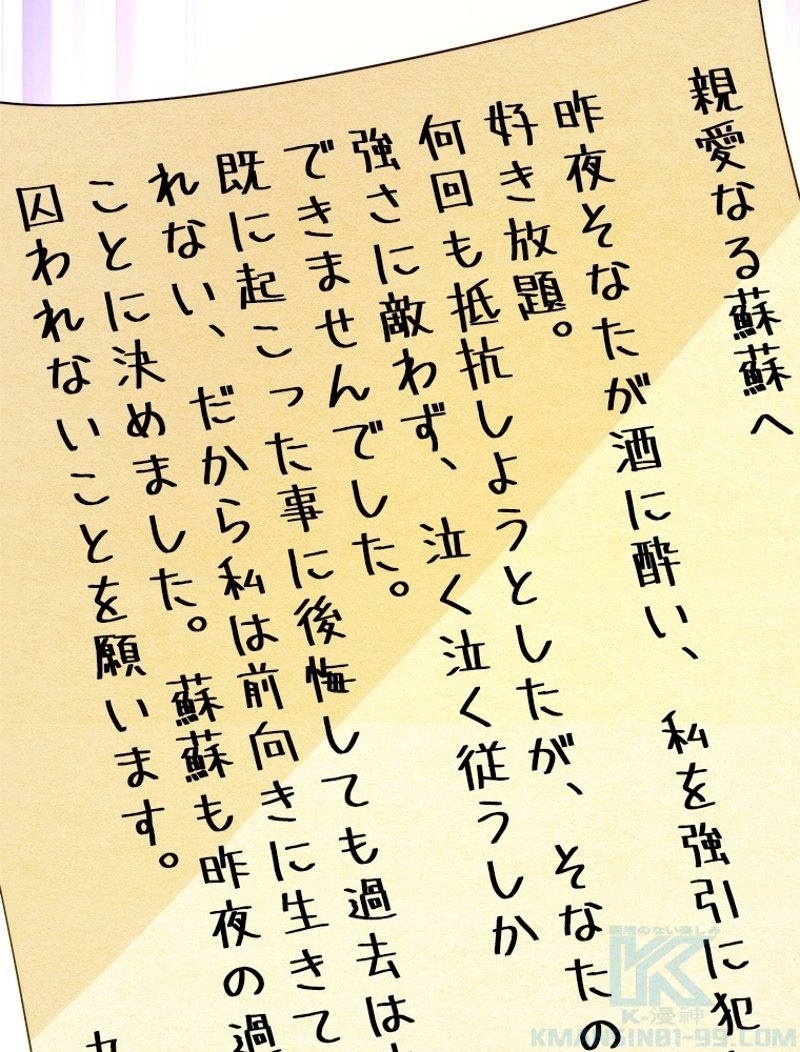 親愛なる蘇蘇へ
昨夜そなたが酒に酔い、私を強引に犯
好き放題。
何回も抵抗しようとしたが、そなたの
強さに敵わず、泣く泣く従うしか
できませんでした。
既に起こった事に後悔しても過去は
れない、だから私は前向きに生きて
ことに決めました。蘇蘇も昨夜の過
囚われないことを願います。
国境のない楽しみ
K-漫神
KMANGIN01-99.COM